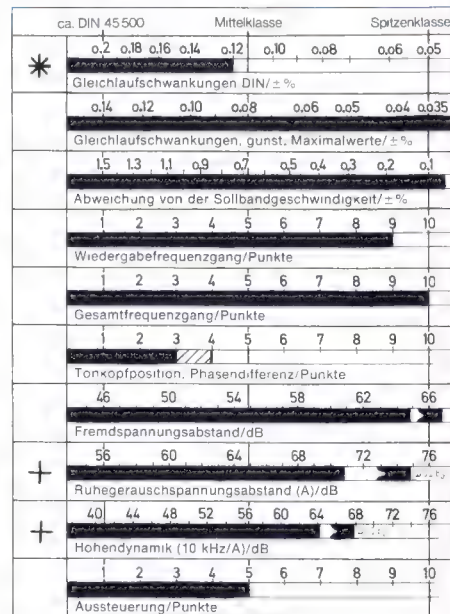 ca. DIN 45 500 Mittelklasse Spitzenklasse
0,2 0,18 0,16 0,14 0,12 0,10 0,08 0,06 0,05
* Gleichlaufschwankungen DIN/±%
0,14 0,12 0,10 0,08 0,06 0,05 0,04 0,035
Gleichlaufschwankungen, günst. Maximalwerte/±%
1,5 1,3 1,1 0,9 0,7 0,5 0,4 0,3 0,2 0,1
Abweichung von der Sollbandgeschwindigkeit/±%
1 2 3 4 5 6 7 8 9 10
Wiedergabefrequenzgang/Punkte
1 2 3 4 5 6 7 8 9 10
Gesamtfrequenzgang/Punkte
1 2 3 4 5 6 7 8 9 10
Tonkopfposition, Phasendifferenz/Punkte
46 50 54 58 62 66
Fremdspannungsabstand/dB
56 60 64 68 72 76
+ Ruhegeräuschspannungsabstand (A)/dB
40 44 48 52 56 60 64 68 72 76
+ Höhendynamik (10 kHz/A)/dB
1 2 3 4 5 6 7 8 9 10
Aussteuerung/Punkte